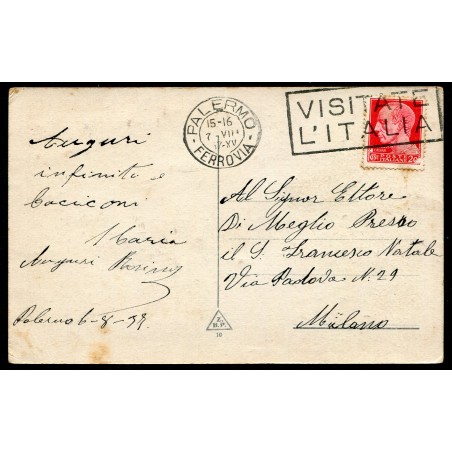 Auguri
infiniti e
bacioni
Maria
Auguri
Palermo 6-8-37
PALERMO
15-16
7 VIII
FERROVIA
VISITATE
L'ITALIA
Al Signor Ettore
Di Meglio Presso
il S. Francesco Natale
Via Padova N. 29
Milano
Z.
B.P.
10